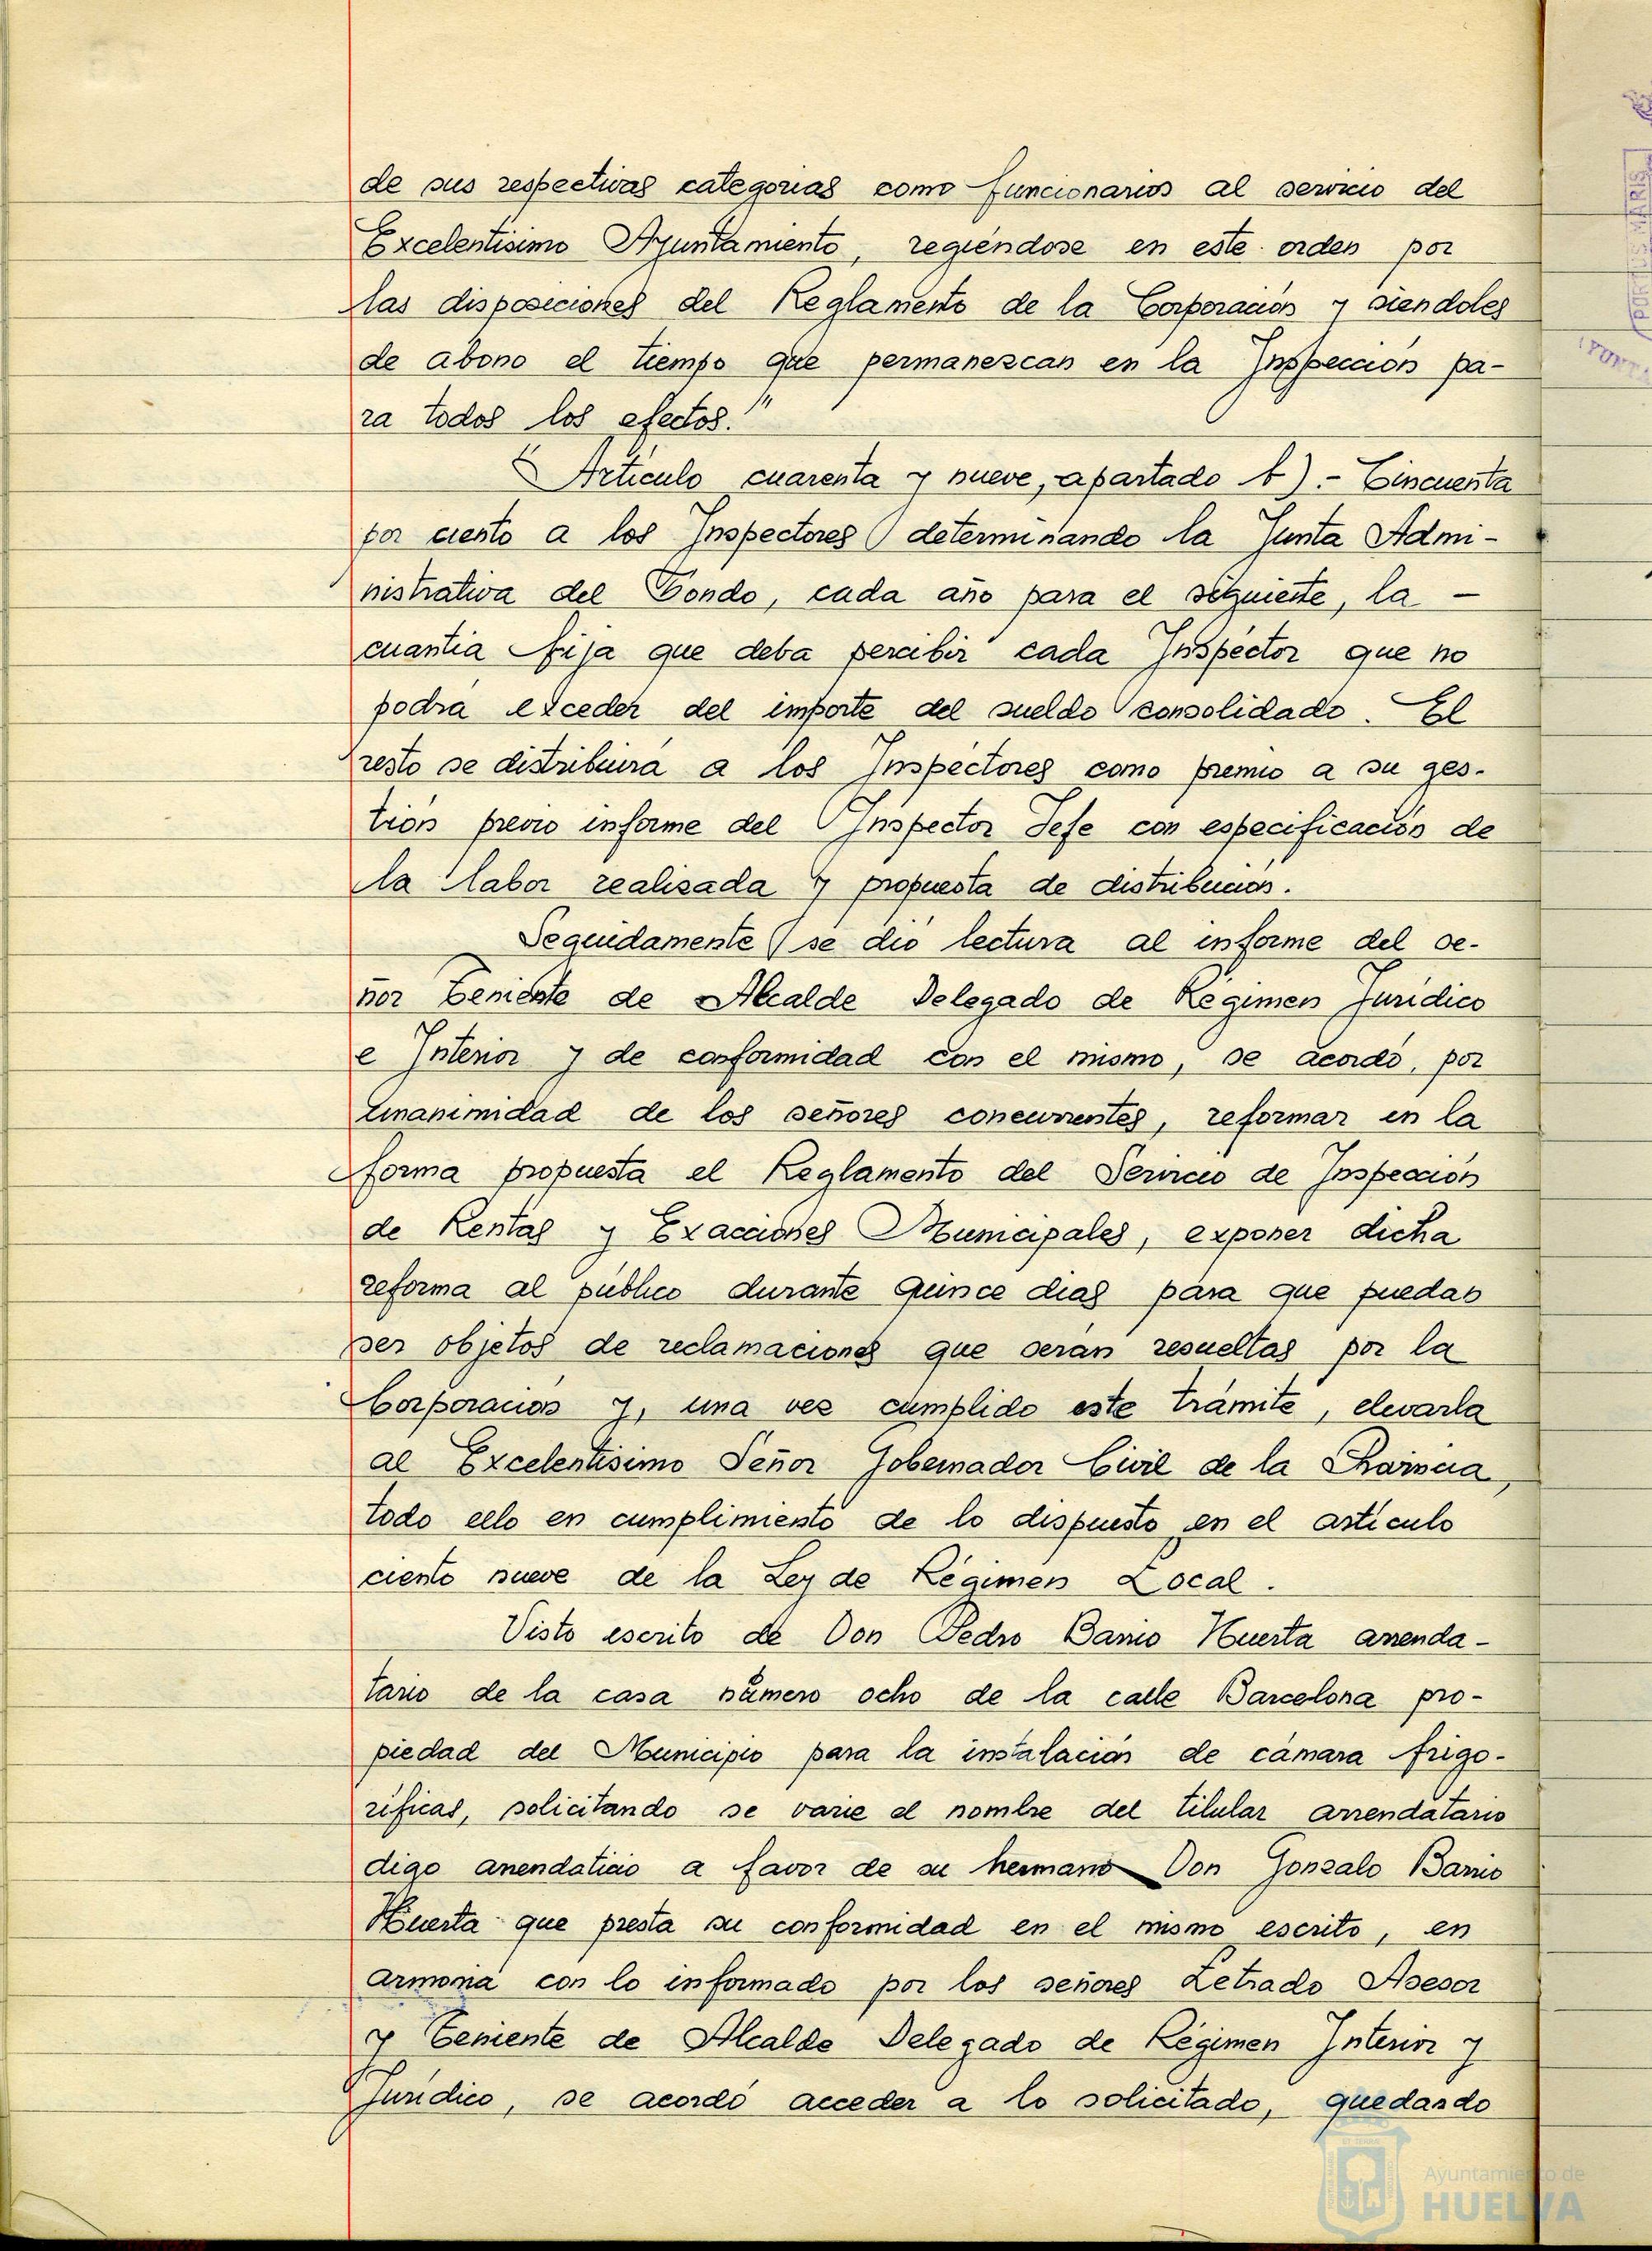 de sus respectivas categorias como funcionarios al servicio del
Excelentisimo Ayuntamiento, regiéndose en este orden por
las disposiciones del Reglamento de la Corporación y siendoles
de abono el tiempo que permanezcan en la Inspección pa-
ra todos los efectos."
"Articulo cuarenta y nueve, apartado b).- Cincuenta
por ciento a los Inspectores determinando la Junta Admi-
nistrativa del Fondo, cada año para el siguiente, la -
cuantia fija que deba percibir cada Inspector que no
podrá exceder del importe del sueldo consolidado. El
resto se distribuirá a los Inspectores como premio a su ges-
tión previo informe del Inspector Jefe con especificación de
la labor realizada y propuesta de distribución.
Seguidamente se dió lectura al informe del se-
ñor Teniente de Alcalde Delegado de Regimen Juridico
e Interior y de conformidad con el mismo, se acordó, por
unanimidad de los señores concurrentes, reformar en la
forma propuesta el Reglamento del Servicio de Inspección
de Rentas y Exacciones Municipales, exponer dicha
reforma al público durante quince dias para que puedan
ser objetos de reclamaciones que serán resueltas por la
Corporación y, una vez cumplido este trámite, elevarla
al Excelentisimo Señor Gobernador Civil de la Provincia,
todo ello en cumplimiento de lo dispuesto en el artículo
ciento nueve de la Ley de Régimen Local.
Visto escrito de Don Pedro Barrio Huerta arrenda-
tario de la casa número ocho de la calle Barcelona pro-
piedad del Municipio para la instalación de cámara frigo-
rificas, solicitando se varie el nombre del titular arrendatario
digo arrendaticio a favor de su hermano Don Gonzalo Barrio
Huerta que presta su conformidad en el mismo escrito, en
armonia con lo informado por los señores Letrado Asesor
y Teniente de Alcalde Delegado de Régimen Interior y
Juridico, se acordó acceder a lo solicitado, quedando
Ayuntamiento de
HUELVA
PORTUS MARIS